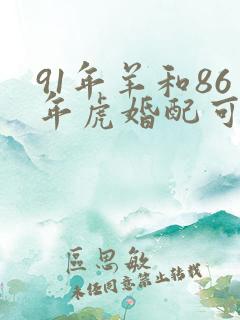 91年羊和86
年虎婚配可
區思敏
未经同意禁止转载